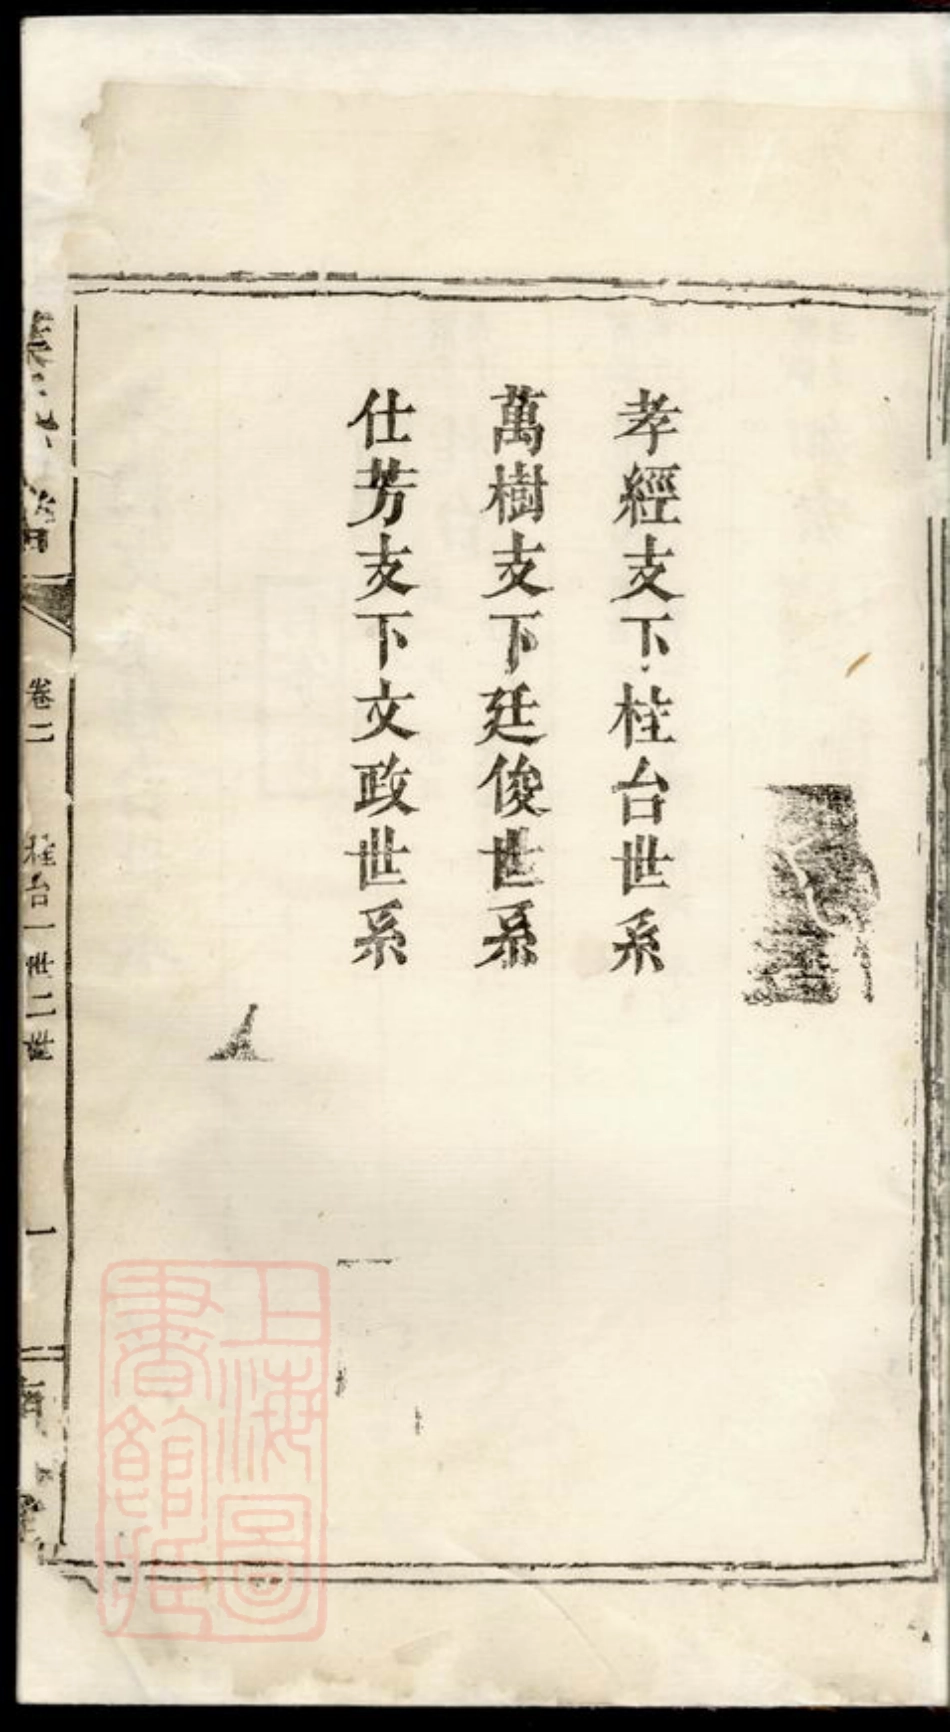 孝經支下桂台世系
萬樹支下廷俊世系
仕芳支下文政世系
卷二
桂台一世二世
一
上海圖書館藏